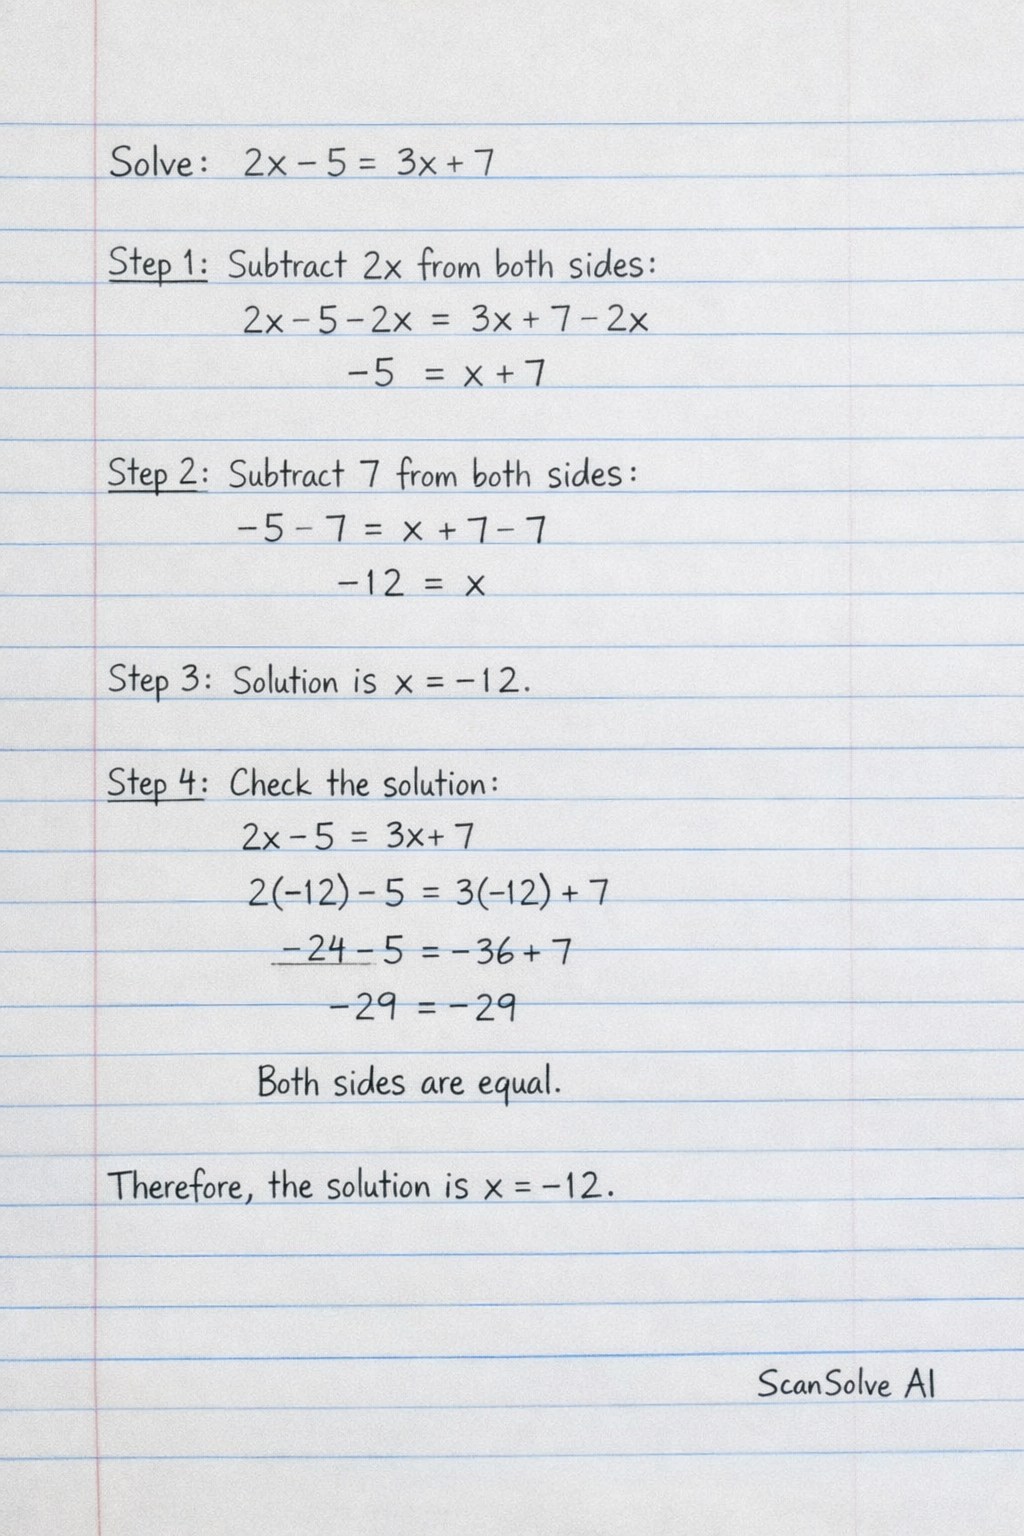 Solve: 2x - 5 = 3x + 7
Step 1: Subtract 2x from both sides:
2x - 5 - 2x = 3x + 7 - 2x
-5 = x + 7
Step 2: Subtract 7 from both sides:
-5 - 7 = x + 7 - 7
-12 = x
Step 3: Solution is x = -12.
Step 4: Check the solution:
2x - 5 = 3x + 7
2(-12) - 5 = 3(-12) + 7
-24 - 5 = -36 + 7
-29 = -29
Both sides are equal.
Therefore, the solution is x = -12.
ScanSolve AI